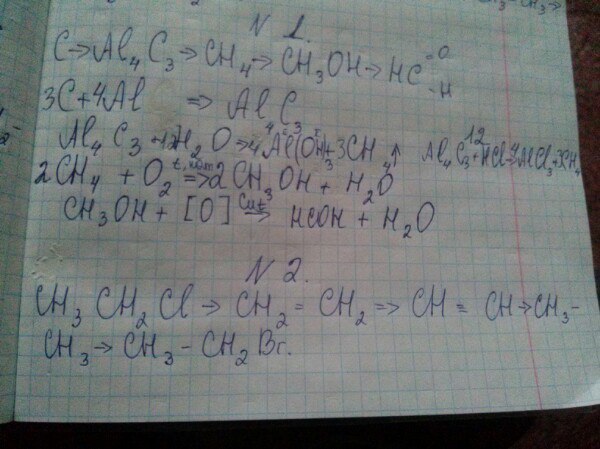 N 1.
C → Al₄C₃ → CH₄ → CH₃OH → HC =O -H
3C + 4Al ⇒ Al₄C₃
Al₄C₃ + 12H₂O → 4Al(OH)₃ + 3CH₄↑ Al₄C₃ + 12HCl → 4AlCl₃ + 3CH₄
2CH₄ + O₂ t, кат ⇒ 2CH₃OH + H₂O
CH₃OH + [O] Cu,t ⇒ HCOH + H₂O
N 2.
CH₃CH₂Cl → CH₂ = CH₂ ⇒ CH ≡ CH → CH₃ -
CH₃ → CH₃ - CH₂Br.